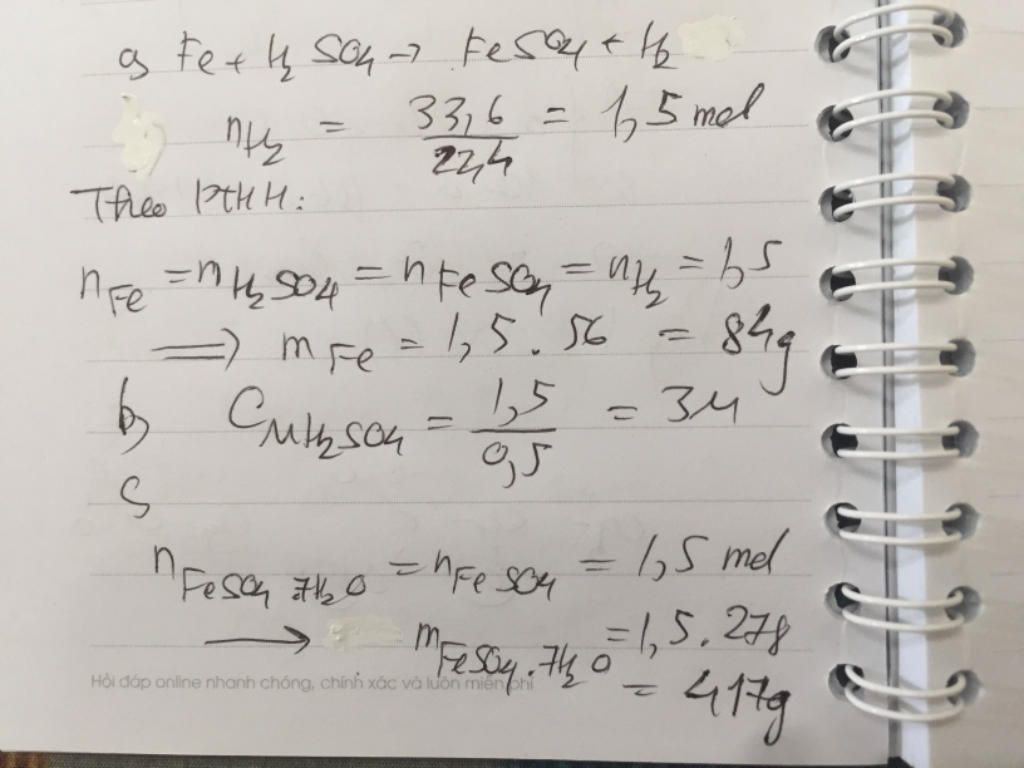 a, Fe + H₂SO₄ → FeSO₄ + H₂
nH₂ = 33,6/22,4 = 1,5 mol
Theo PTHH:
nFe = nH₂SO₄ = nFeSO₄ = nH₂ = 1,5
⟹ mFe = 1,5 . 56 = 84g
b, CMH₂SO₄ = 1,5/0,5 = 3M
c,
nFeSO₄.7H₂O = nFeSO₄ = 1,5 mol
⟶ mFeSO₄.7H₂O = 1,5 . 278
= 417g
Hỏi đáp online nhanh chóng, chính xác và luôn miễn phí